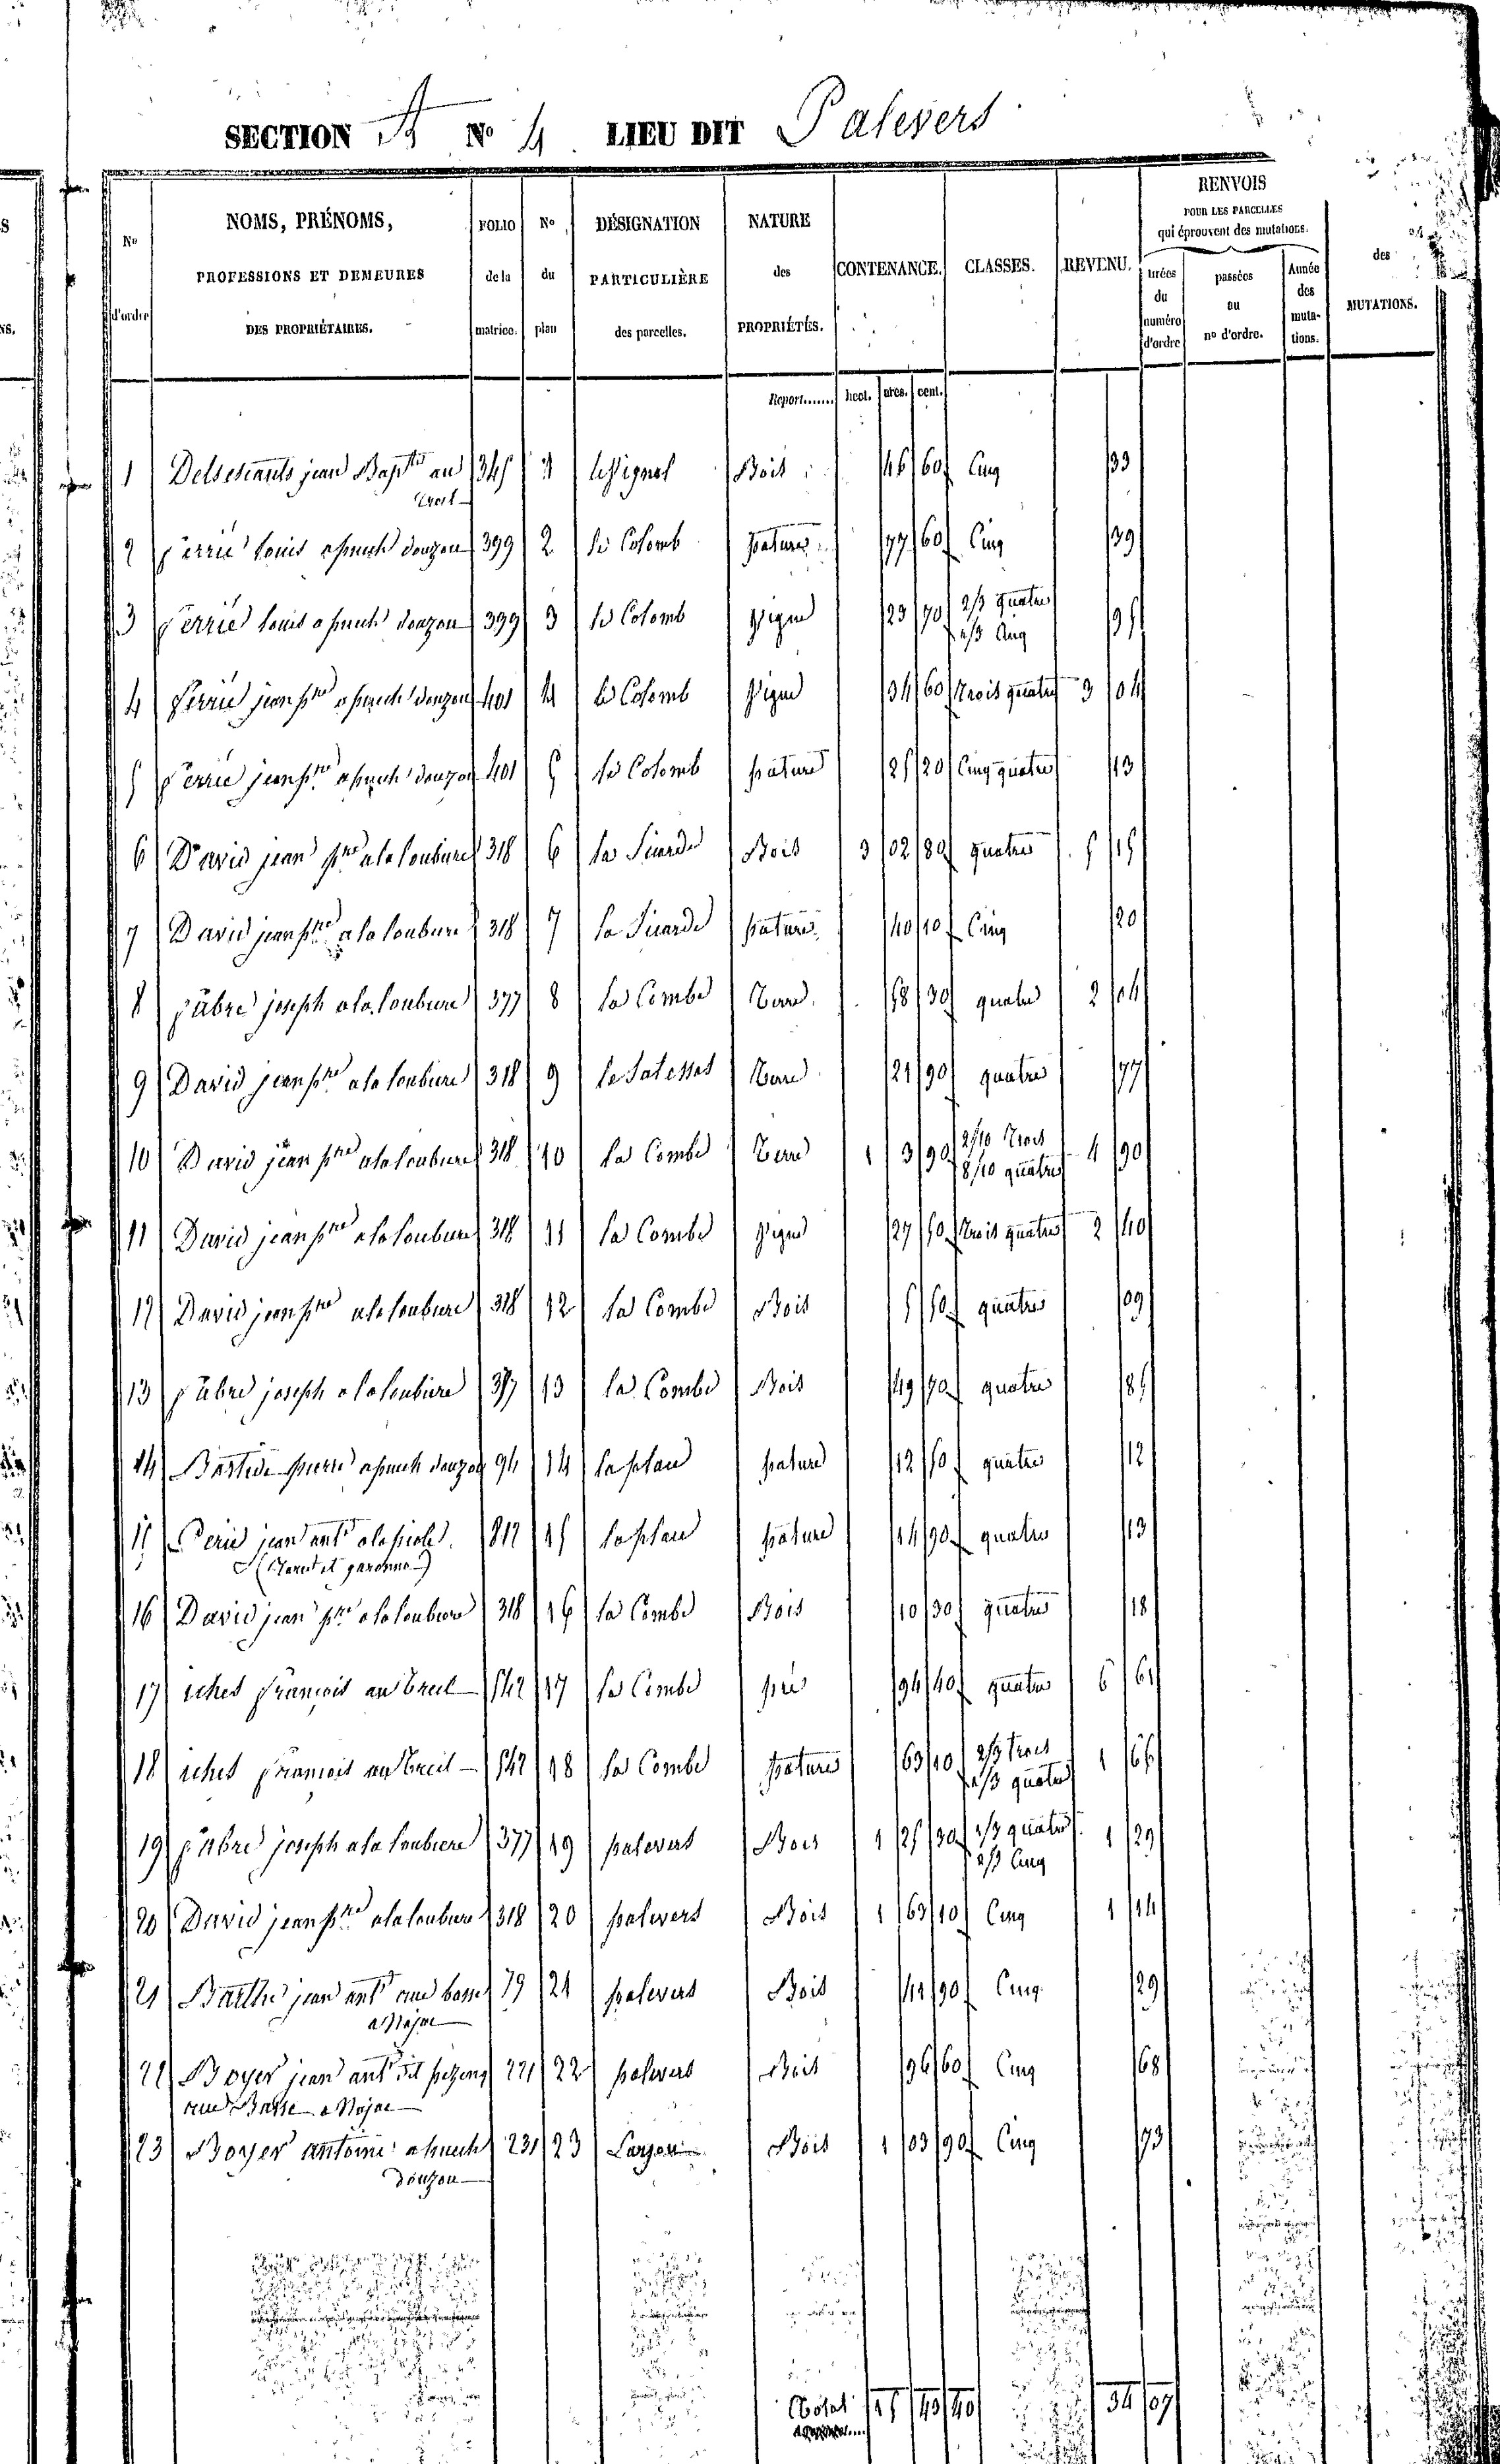 SECTION A No 4 LIEU DIT Palevers
RENVOIS
POUR LES PARCELLES
qui éprouvent des mutations.
No d'ordre
NOMS, PRÉNOMS,
PROFESSIONS ET DEMEURES
DES PROPRIÉTAIRES.
FOLIO de la matrice.
No du plan
DÉSIGNATION
PARTICULIÈRE
des parcelles.
NATURE
des
PROPRIÉTÉS.
CONTENANCE.
CLASSES.
REVENU.
tirées du numéro d'ordre
passées au no d'ordre.
Année des mutations.
des
MUTATIONS.
Report....... hect. ares. cent.
1 jean Bapte au 345 1 Bois 46 60 Cinq 33
breil
2 Perrié louis a puech douzou 399 2 la Colomb pature 77 60 Cinq 39
3 Perrié louis a puech douzou 399 3 la Colomb Vigne 23 70 2/3 quatre 95
1/3 Cinq
4 Perrié jean pre a puech douzou 401 4 la Colomb Vigne 34 60 trois quatre 3 04
5 Perrié jean pre a puech douzou 401 5 la Colomb pature 25 20 Cinq quatre 13
6 David jean pre a la loubiere 318 6 la Sicarde Bois 3 02 80 quatre 5 15
7 David jean pre a la loubiere 318 7 la Sicarde pature 40 10 Cinq 20
8 fabre joseph a la loubiere 377 8 la Combe Terre 58 30 quatre 2 04
9 David jean pre a la loubiere 318 9 Terre 21 90 quatre 77
10 David jean pre a la loubiere 318 10 la Combe Terre 1 3 90 2/10 Trois 4 90
8/10 quatre
11 David jean pre a la loubiere 318 11 la Combe Vigne 27 50 trois quatre 2 40
12 David jean pre a la loubiere 318 12 la Combe Bois 5 50 quatre 09
13 fabre joseph a la loubiere 377 13 la Combe Bois 49 70 quatre 85
14 Bastide pierre a puech douzou 94 14 la plane pature 12 50 quatre 12
15 Perié jean ant 812 15 la plane pature 14 90 quatre 13
(Tarn et garonne)
16 David jean pre a la loubiere 318 16 la Combe Bois 10 30 quatre 18
17 iches francois au breil 542 17 la Combe pré 94 40 quatre 6 61
18 iches francois au breil 542 18 la Combe pature 63 10 2/3 trois 1 65
1/3 quatre
19 fabre joseph a la loubiere 377 19 palevers Bois 1 25 30 1/3 quatre 1 29
2/3 Cinq
20 David jean pre a la loubiere 318 20 palevers Bois 1 63 10 Cinq 1 14
21 Barthe jean ant rue basse 79 21 palevers Bois 41 90 Cinq 29
a Najac
22 Boyer jean ant dit 221 22 palevers Bois 96 60 Cinq 68
rue Basse a Najac
23 Boyer antoine a puech 231 23 Bois 1 03 90 Cinq 73
douzou
Total 15 43 40 34 07